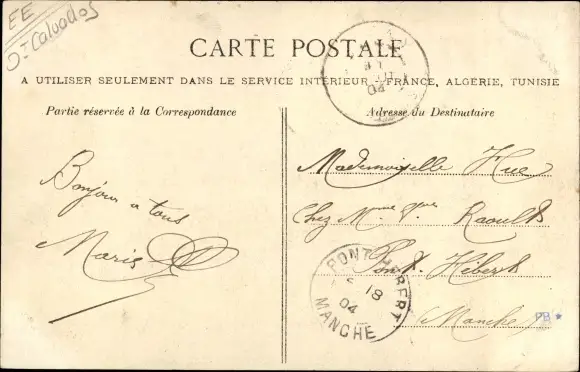 EE
Dt Calvados
CARTE POSTALE
A UTILISER SEULEMENT DANS LE SERVICE INTÉRIEUR FRANCE, ALGÉRIE, TUNISIE
Partie réservée à la Correspondance
Adresse du Destinataire
Bonjour a tous
Marie
Mademoiselle Hue
Chez Mr
Raoult
Pont Hébert
Manche
PONT HÉBERT
18
04
MANCHE
PB *